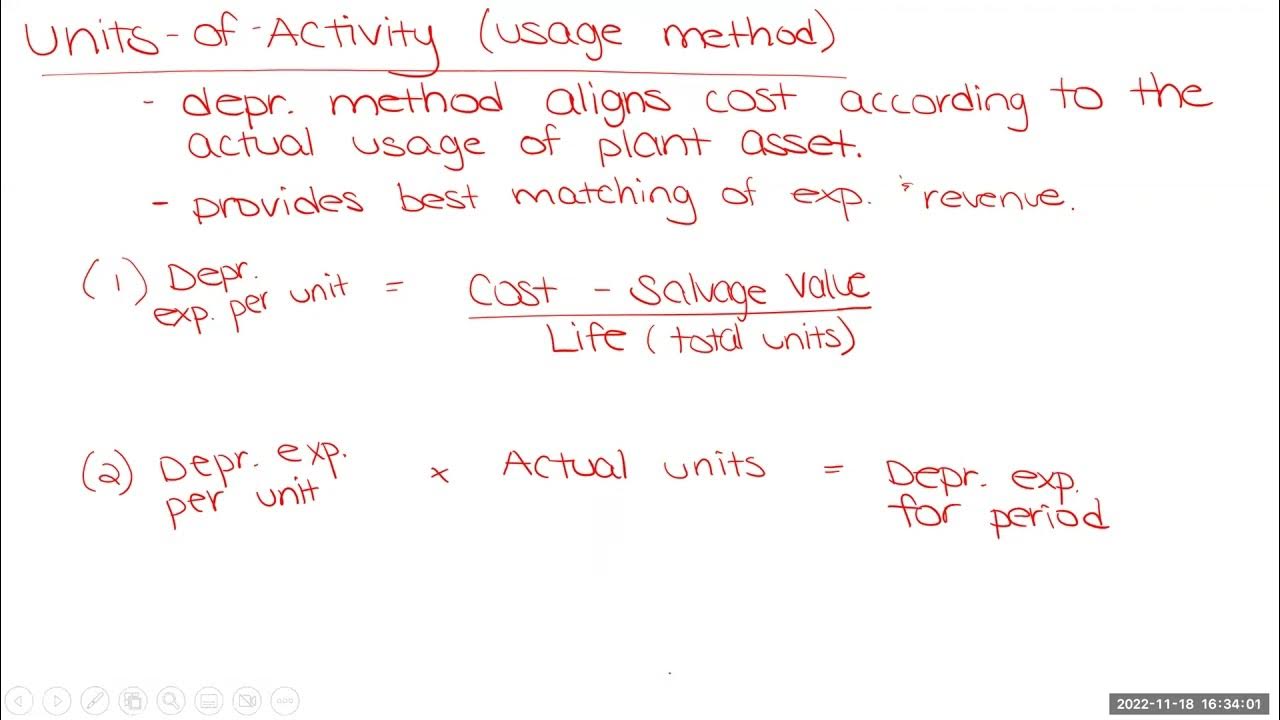 Units-of-Activity (usage method)
- depr. method aligns cost according to the
actual usage of plant asset.
- provides best matching of exp. & revenue.
(1) Depr.
exp. per unit = Cost - Salvage Value
Life (total units)
(2) Depr. exp.
per unit x Actual units = Depr. exp.
for period
2022-11-18 16:34:01